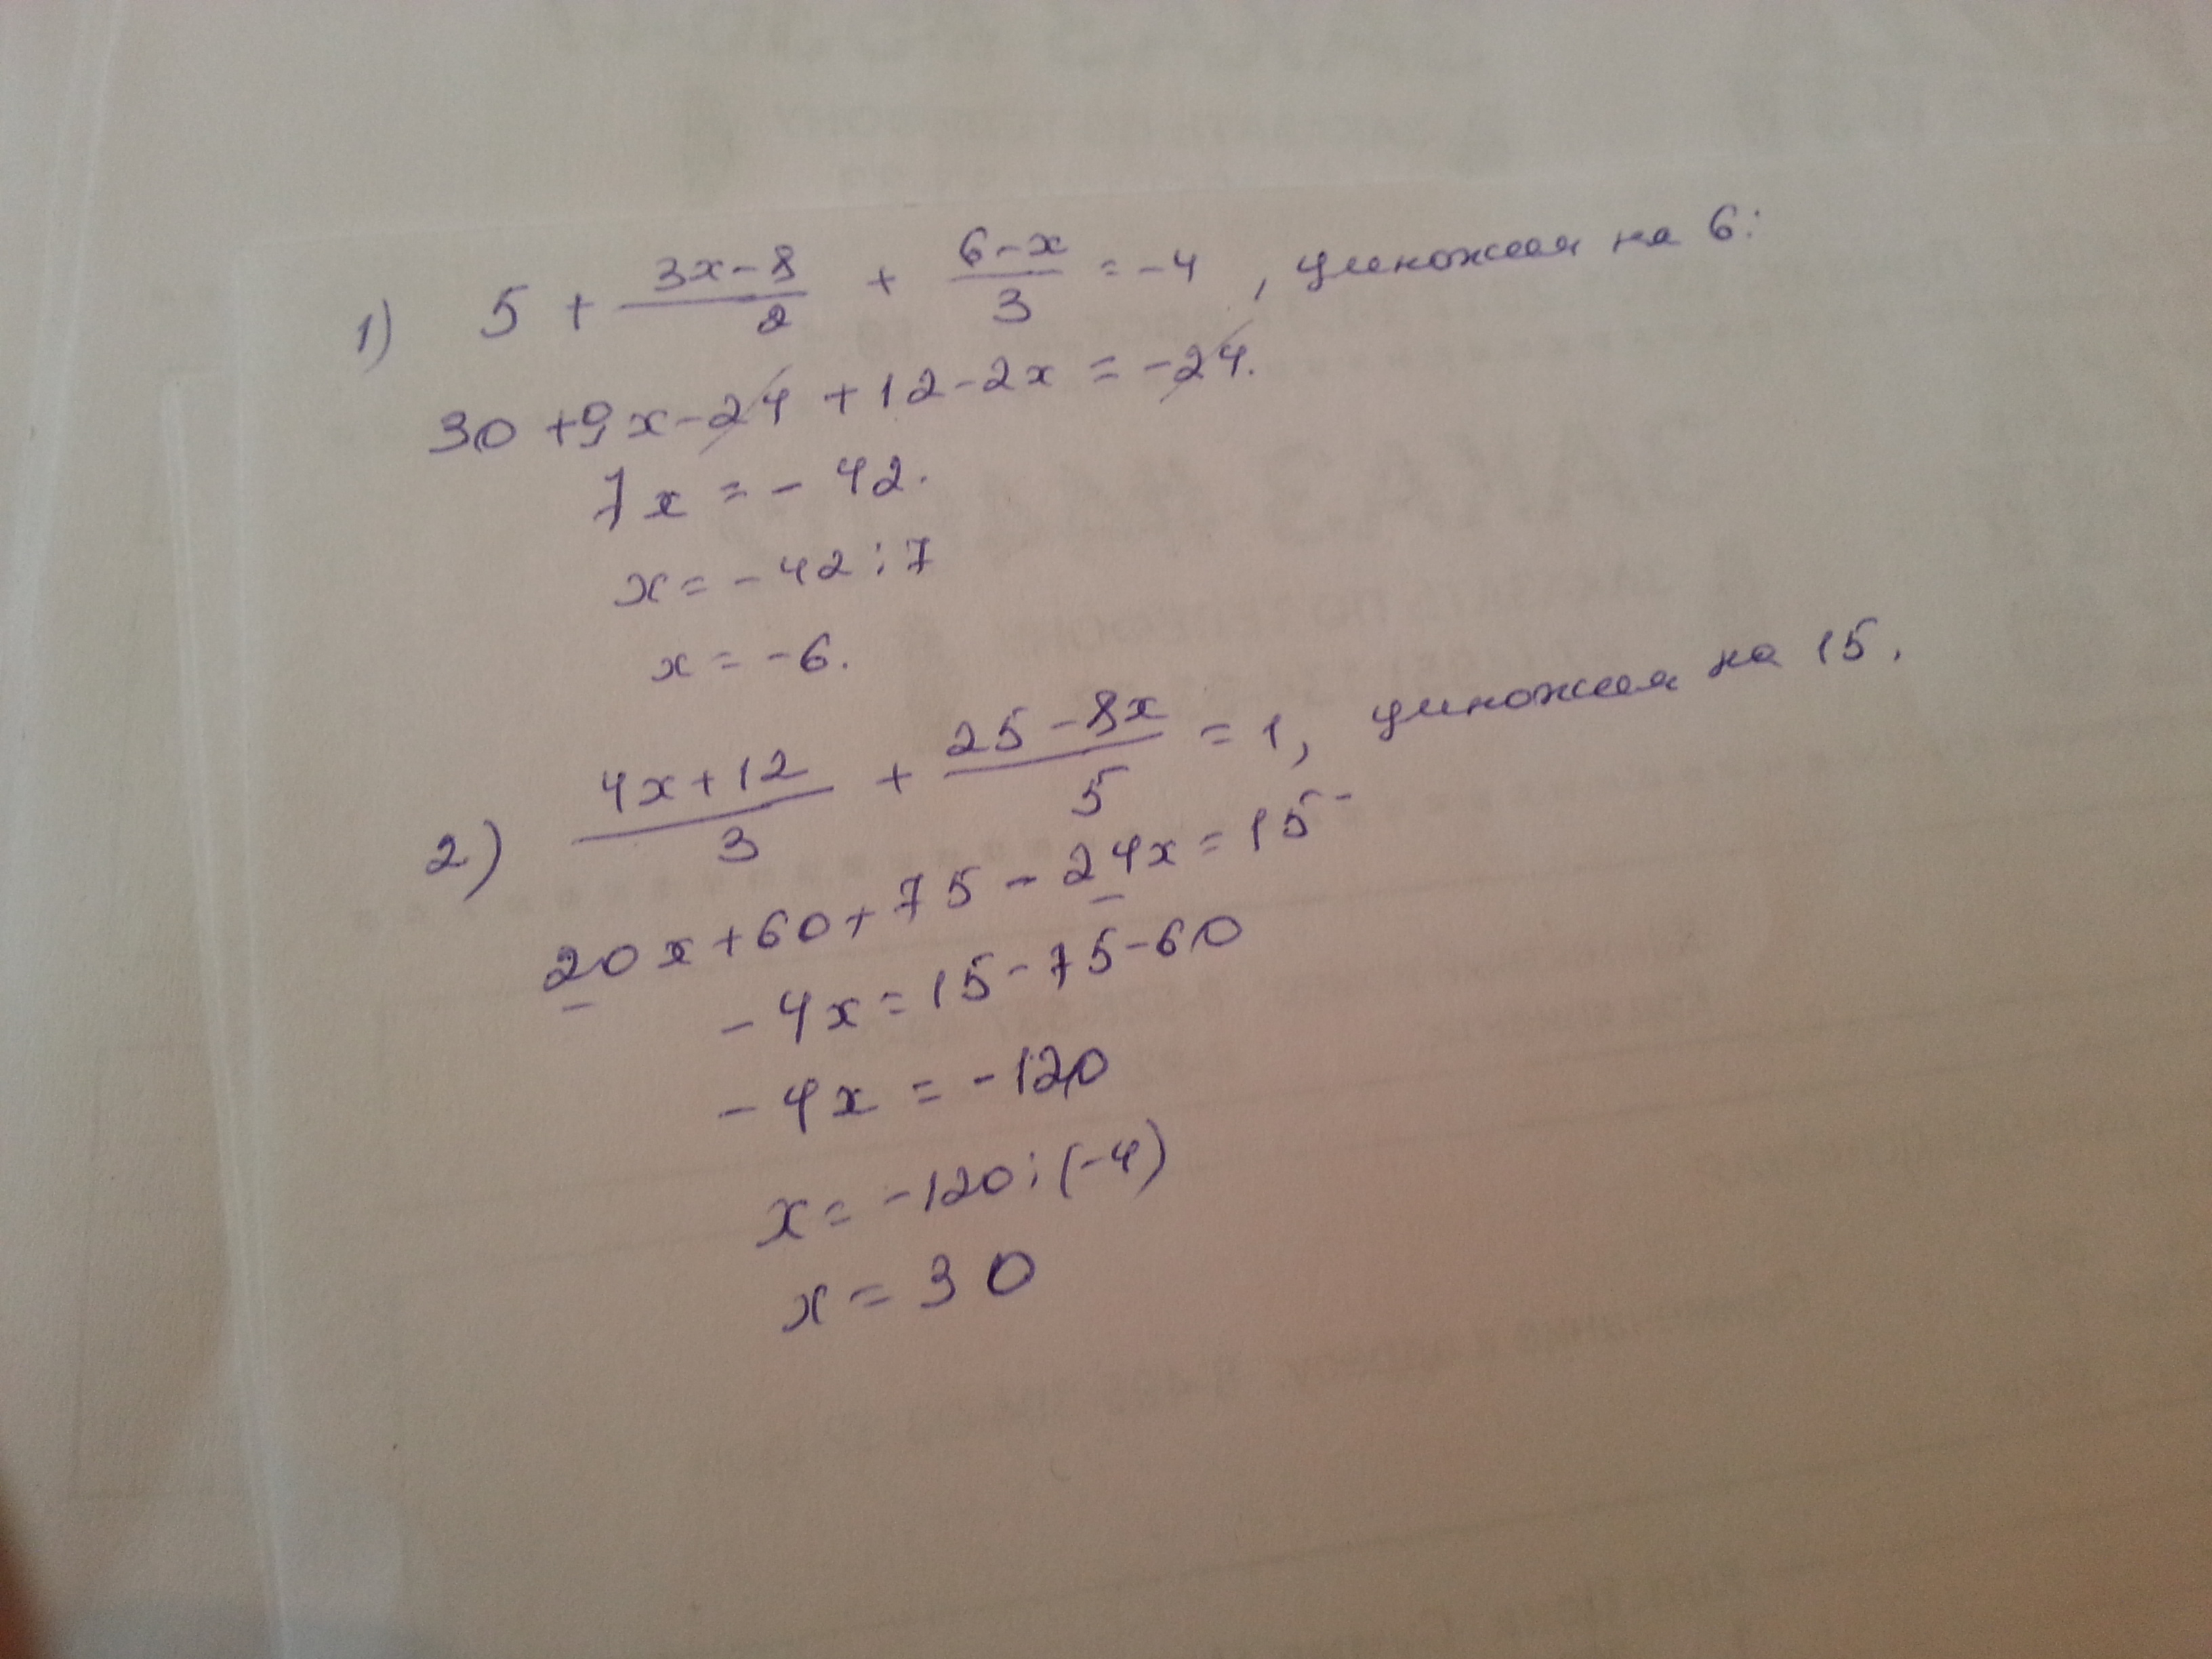 1) 5 + (3x-8)/2 + (6-x)/3 = -4, умножая на 6:
30 + 9x - 24 + 12 - 2x = -24.
7x = -42.
x = -42 : 7
x = -6.
2) (4x+12)/3 + (25-8x)/5 = 1, умножая на 15.
20x + 60 + 75 - 24x = 15
-4x = 15 - 75 - 60
-4x = -120
x = -120 : (-4)
x = 30